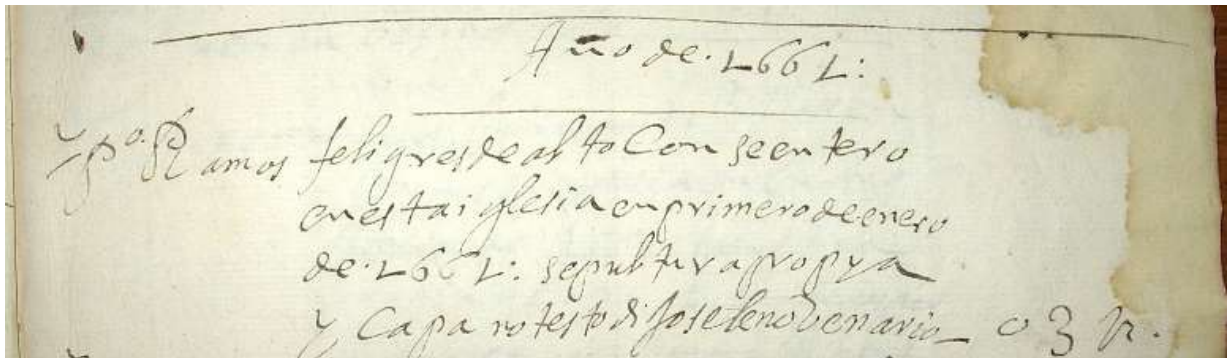 Año de. 1661:
Po. Ramos feligres de alto Con se entero
en esta iglesia en primero de enero
de. 1661: sepultura propya
y Capa no testo dijosele nobenario - 03 p.